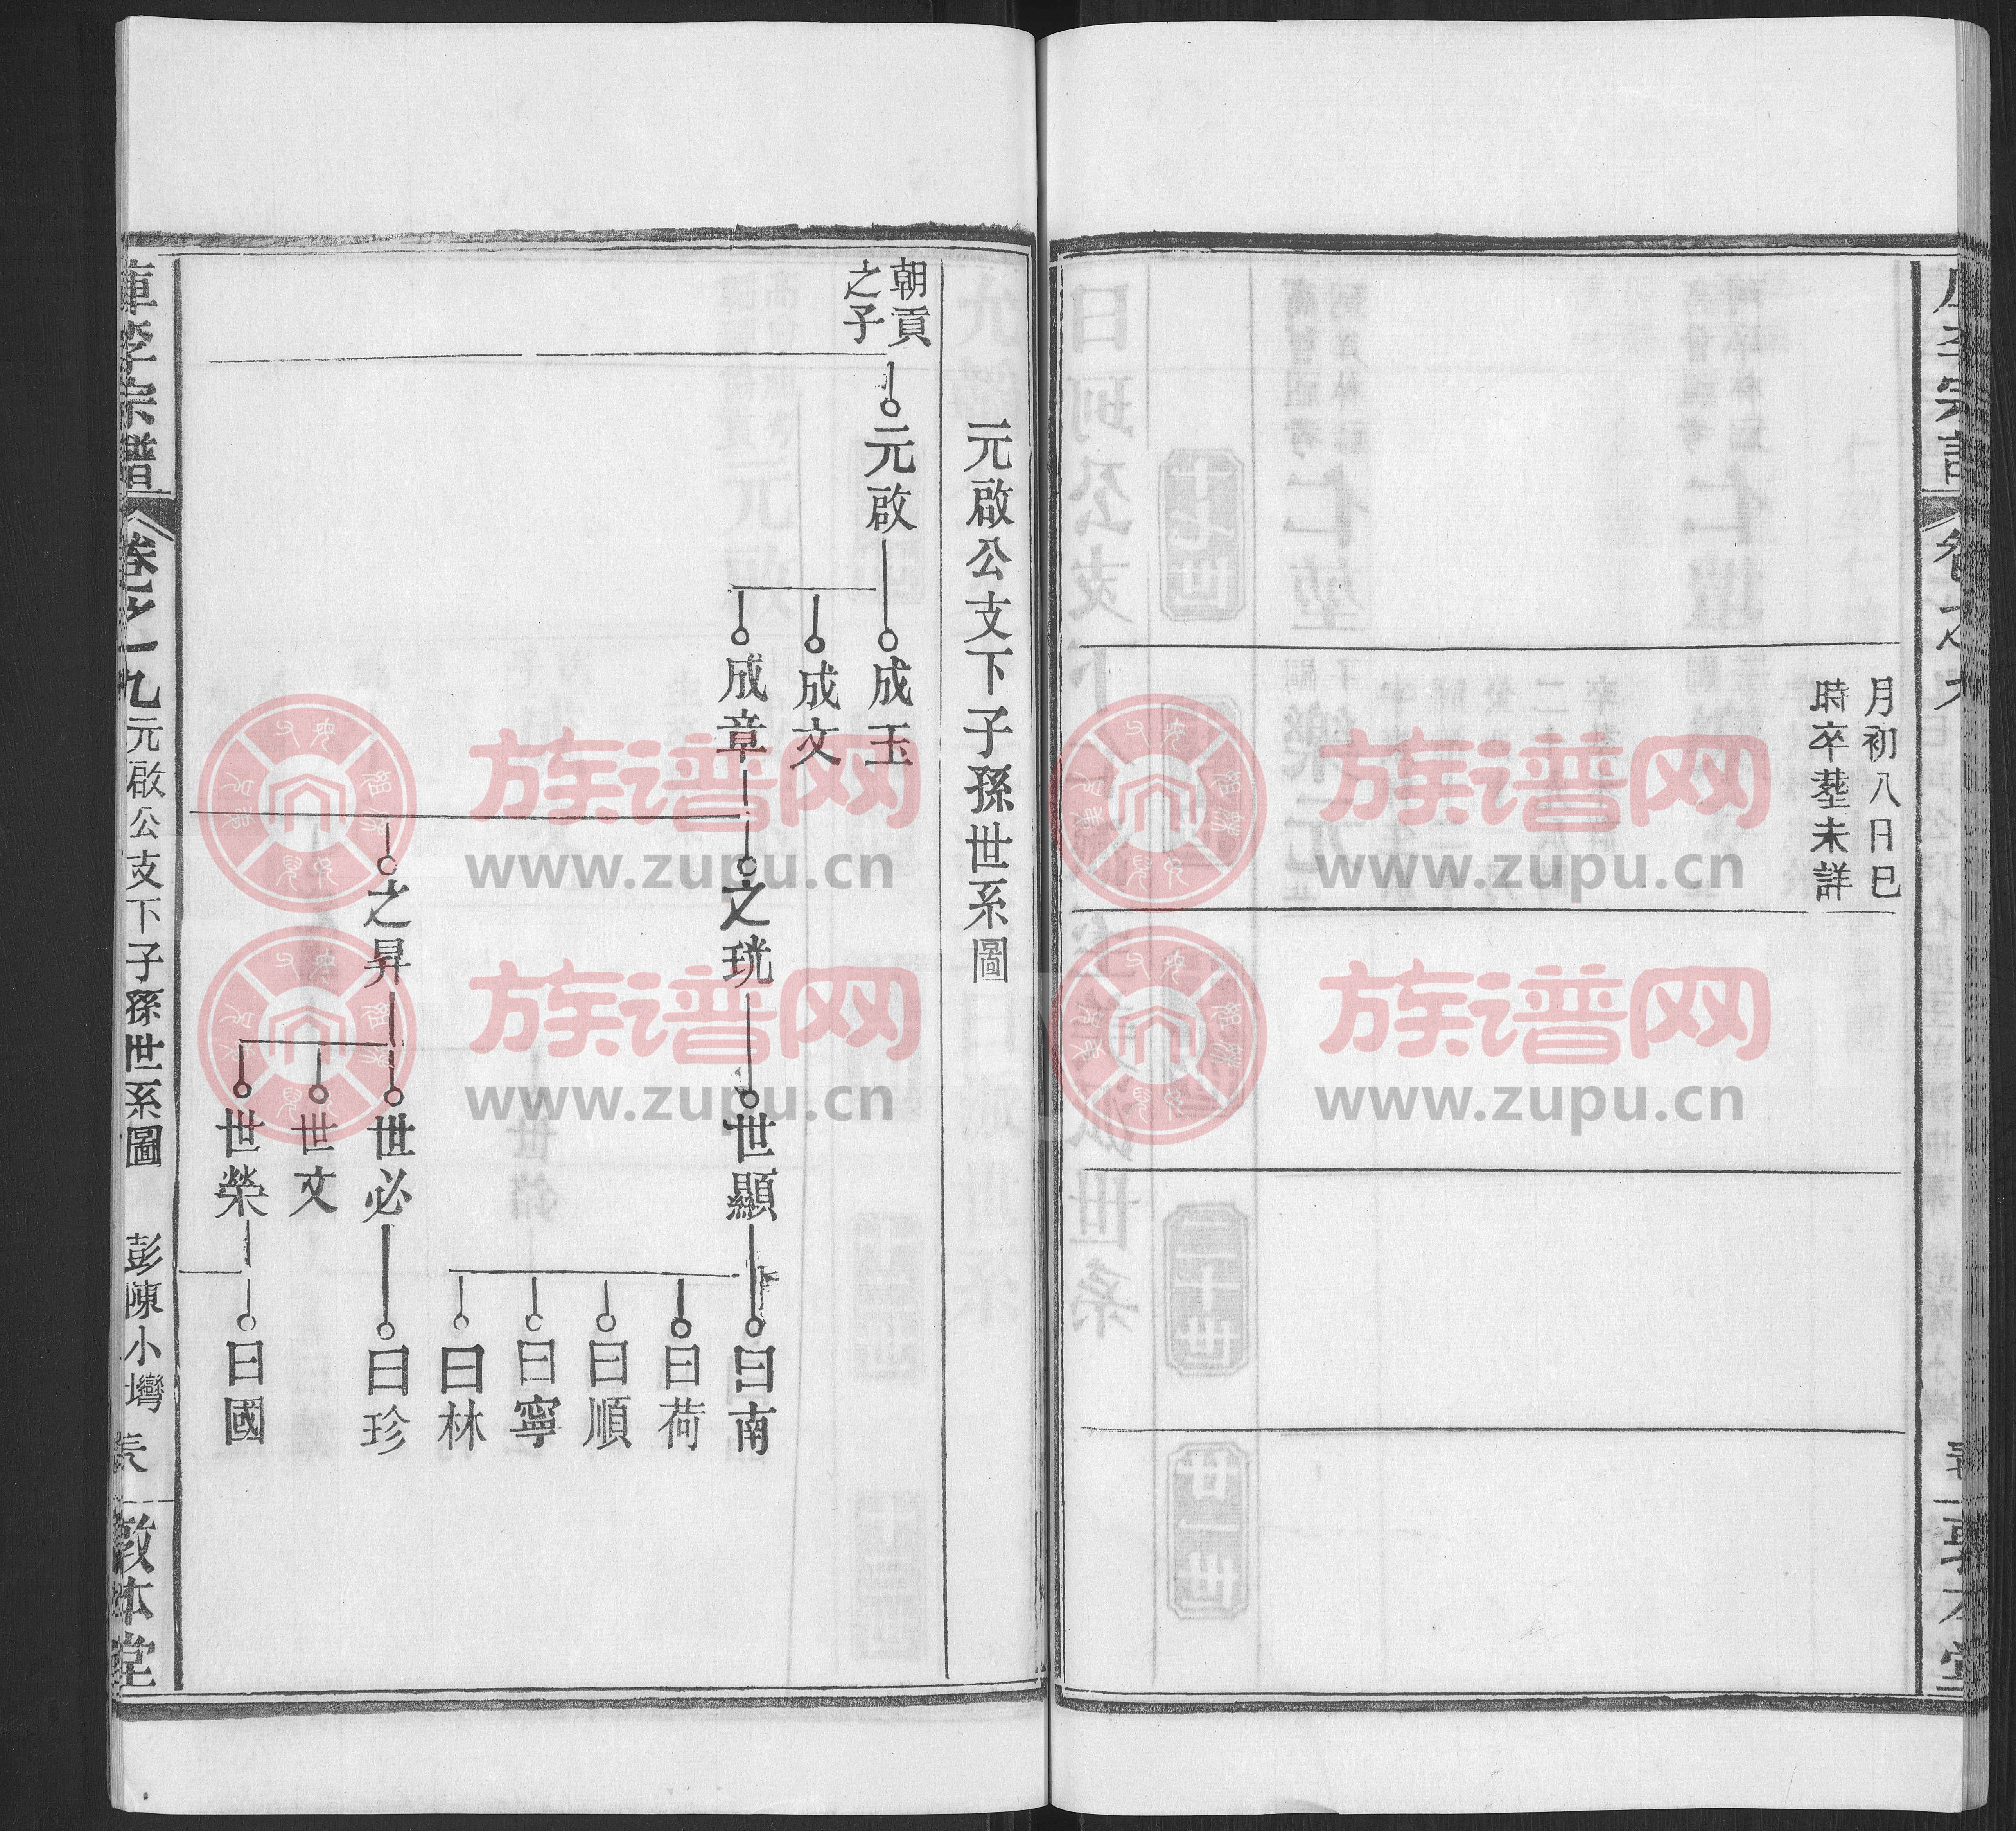 月初八日巳
時卒塟未詳
元啟公支下子孫世系圖
朝貢
之子
元啟
成玉
成文
成章
之珖
之昇
世顯
世必
世文
世榮
曰南
曰荷
曰順
曰寧
曰林
曰珍
曰國
李宗譜
卷之一九
元啟公支下子孫世系圖
彭陳小灣
敦本堂
族谱网
www.zupu.cn
族谱网
www.zupu.cn
族谱网
www.zupu.cn
族谱网
www.zupu.cn